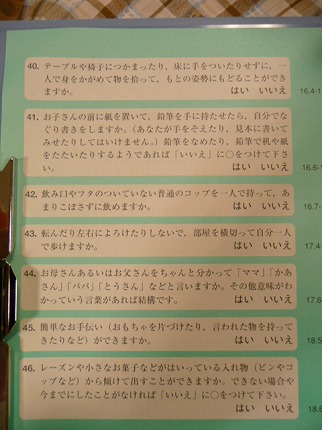 40. テーブルや椅子につかまったり、床に手をついたりせずに、一
人で身をかがめて物を拾って、もとの姿勢にもどることができ
ますか。
はい いいえ
16.4-
41. お子さんの前に紙を置いて、鉛筆を手に持たせたら、自分でな
ぐり書きをしますか。(あなたが手をそえたり、見本に書いて
みせたりしてはいけません。)鉛筆をなめたり、鉛筆で机や紙
をたたいたりするようであれば「いいえ」に○をつけて下さ
い。
はい いいえ
16.6-
42. 飲み口やフタのついていない普通のコップを一人で持って、あ
まりこぼさずに飲めますか。
はい いいえ
43. 転んだり左右によろけたりしないで、部屋を横切って自分一人
で歩けますか。
はい いいえ
17.4-
44. お母さんあるいはお父さんをちゃんと分かって「ママ」「かあ
さん」「パパ」「とうさん」などと言いますか。その他意味がわ
かっていう言葉があれば結構です。
はい いいえ
45. 簡単なお手伝い(おもちゃを片づけたり、言われた物を持って
きたりなど)ができますか。
はい いいえ
18.5
46. レーズンや小さなお菓子などがはいっている入れ物(ビンやコ
ップなど)から傾けて出すことができますか。できない場合や
今までにしたことがなければ「いいえ」に○をつけて下さい。
はい いいえ
18.6